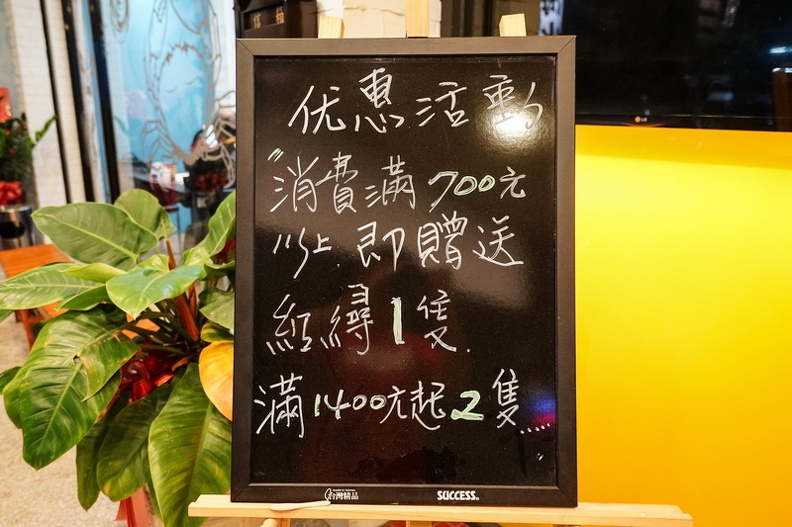 优惠活動
"消費滿700元
以上.即贈送
紅蟳1隻.
滿1400元起2隻....."
台灣精品
SUCCESS®
LG